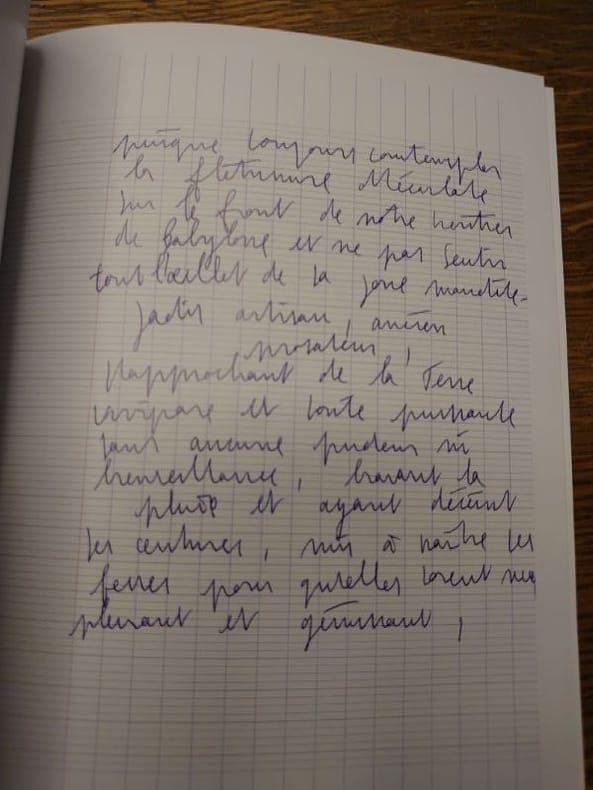 puisque toujours contempler
la flétrissure
sur le front de notre
de Babylone et ne pas sentir
tout l'œillet de la joue maudite -
Jadis artisan, ancien
prosateur,
Rapprochant de la Terre
vivipare et toute puissante
sans aucune pudeur ni
bienveillance, bravant la
pluie et ayant déteint
les ceintures, mis à naître les
pour qu'elles soient
pleurant et gémissant,